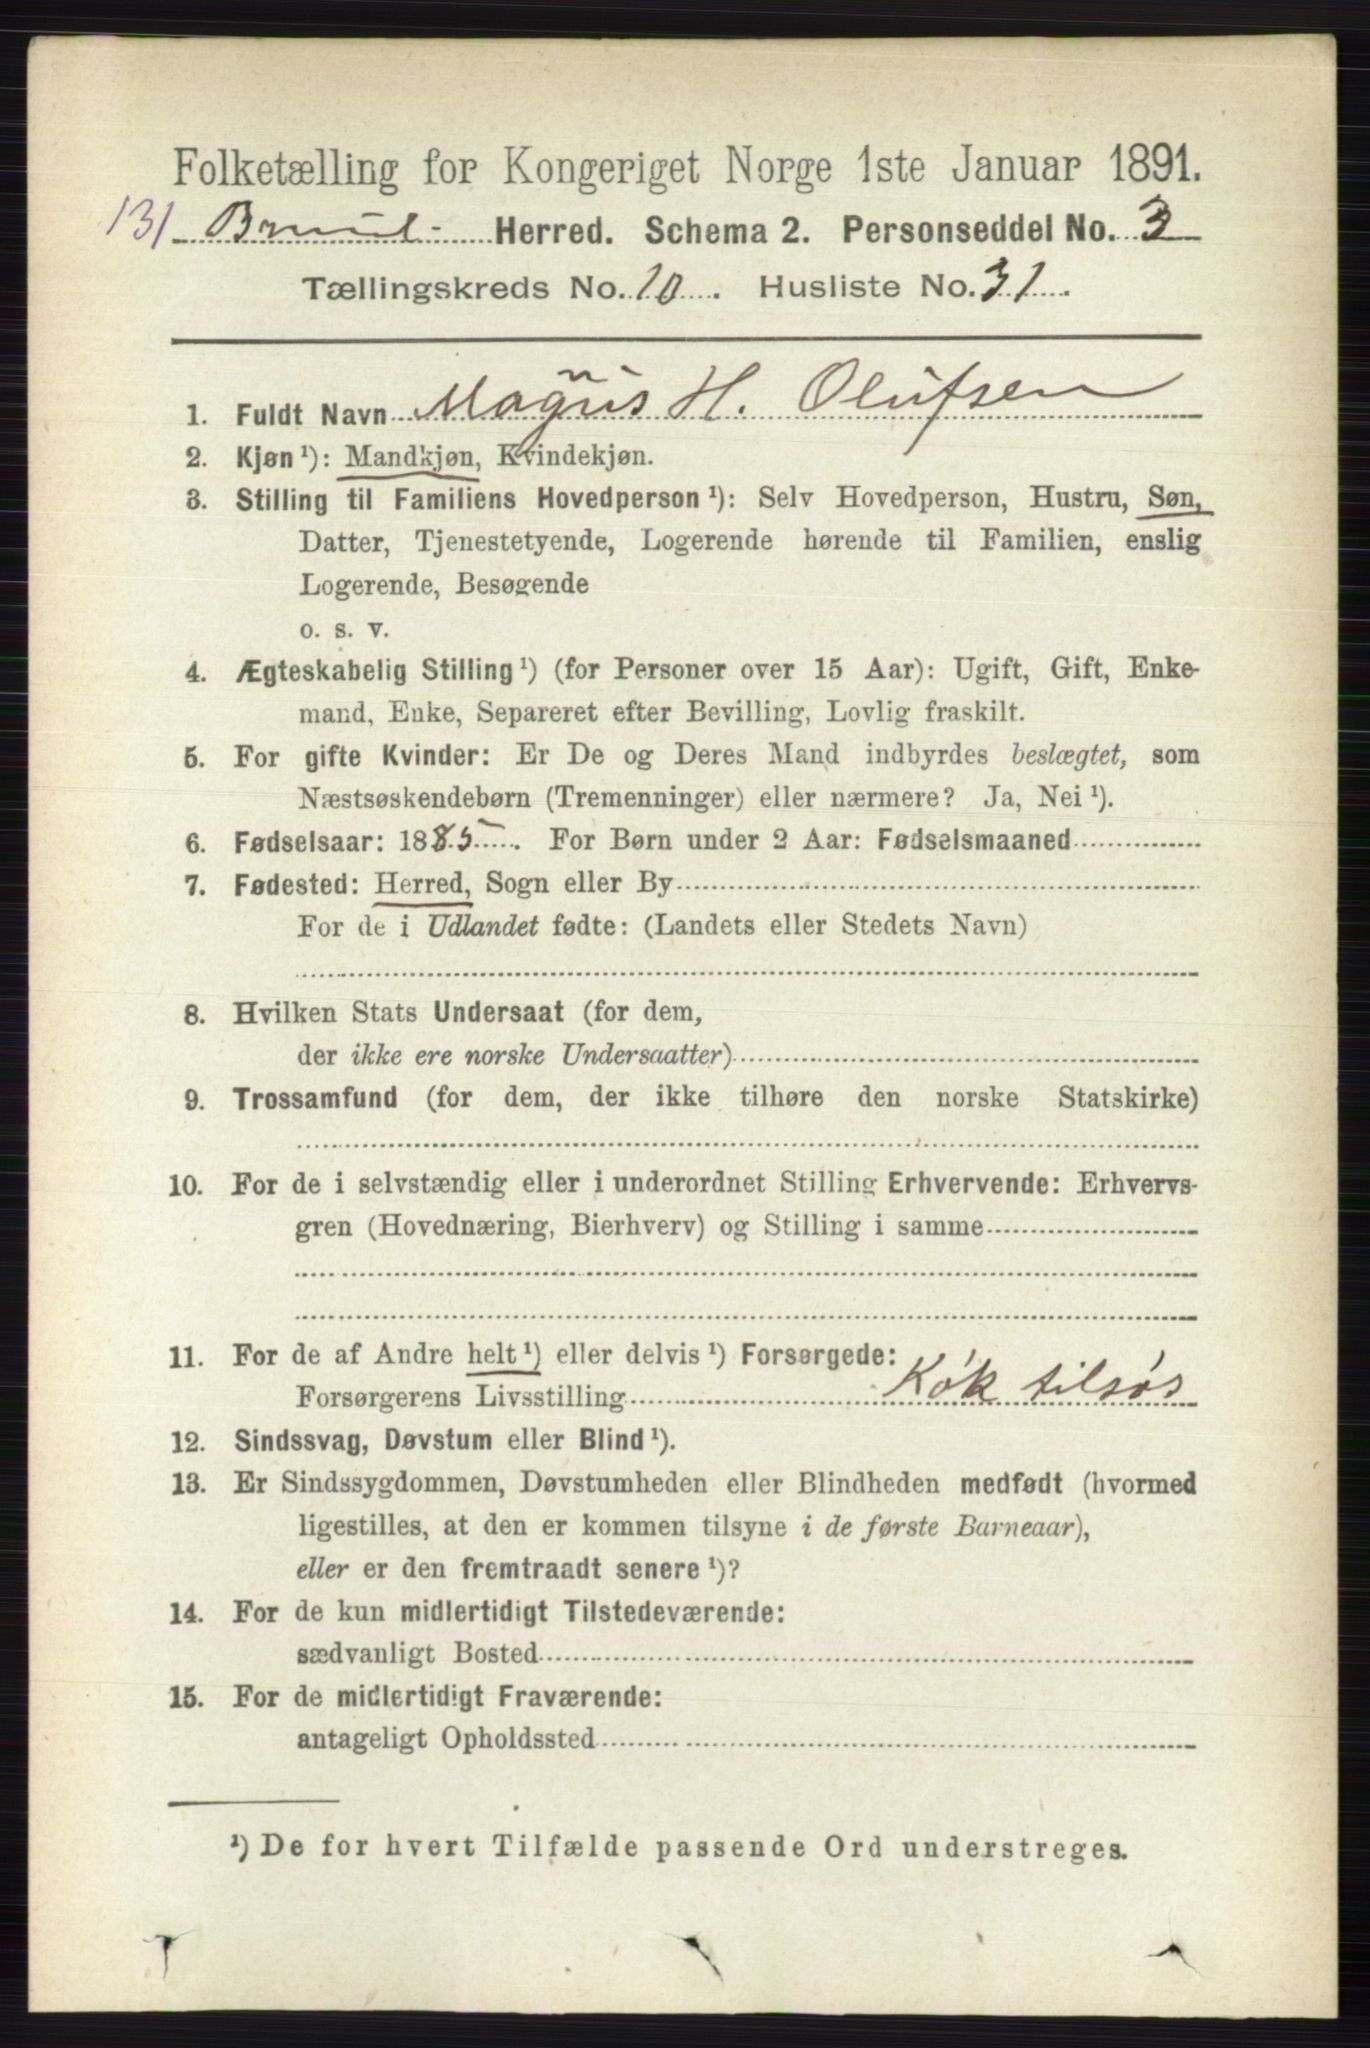 Folketælling for Kongeriget Norge 1ste Januar 1891.
131 Brunl- Herred. Schema 2. Personseddel No. 3
Tællingskreds No. 10. Husliste No. 31.
1. Fuldt Navn Magnus H. Olufsen
2. Kjøn ¹): Mandkjøn, Kvindekjøn.
3. Stilling til Familiens Hovedperson ¹): Selv Hovedperson, Hustru, Søn,
Datter, Tjenestetyende, Logerende hørende til Familien, enslig
Logerende, Besøgende
o. s. v.
4. Ægteskabelig Stilling ¹) (for Personer over 15 Aar): Ugift, Gift, Enke-
mand, Enke, Separeret efter Bevilling, Lovlig fraskilt.
5. For gifte Kvinder: Er De og Deres Mand indbyrdes beslægtet, som
Næstsøskendebørn (Tremenninger) eller nærmere? Ja, Nei ¹).
6. Fødselsaar: 1885. For Børn under 2 Aar: Fødselsmaaned
7. Fødested: Herred, Sogn eller By
For de i Udlandet fødte: (Landets eller Stedets Navn)
8. Hvilken Stats Undersaat (for dem,
der ikke ere norske Undersaatter)
9. Trossamfund (for dem, der ikke tilhøre den norske Statskirke)
10. For de i selvstændig eller i underordnet Stilling Erhvervende: Erhvervs-
gren (Hovednæring, Bierhverv) og Stilling i samme
11. For de af Andre helt ¹) eller delvis ¹) Forsørgede:
Forsørgerens Livsstilling Kok tilsøs
12. Sindssvag, Døvstum eller Blind ¹).
13. Er Sindssygdommen, Døvstumheden eller Blindheden medfødt (hvormed
ligestilles, at den er kommen tilsyne i de første Barneaar),
eller er den fremtraadt senere ¹)?
14. For de kun midlertidigt Tilstedeværende:
sædvanligt Bosted
15. For de midlertidigt Fraværende:
antageligt Opholdssted
¹) De for hvert Tilfælde passende Ord understreges.